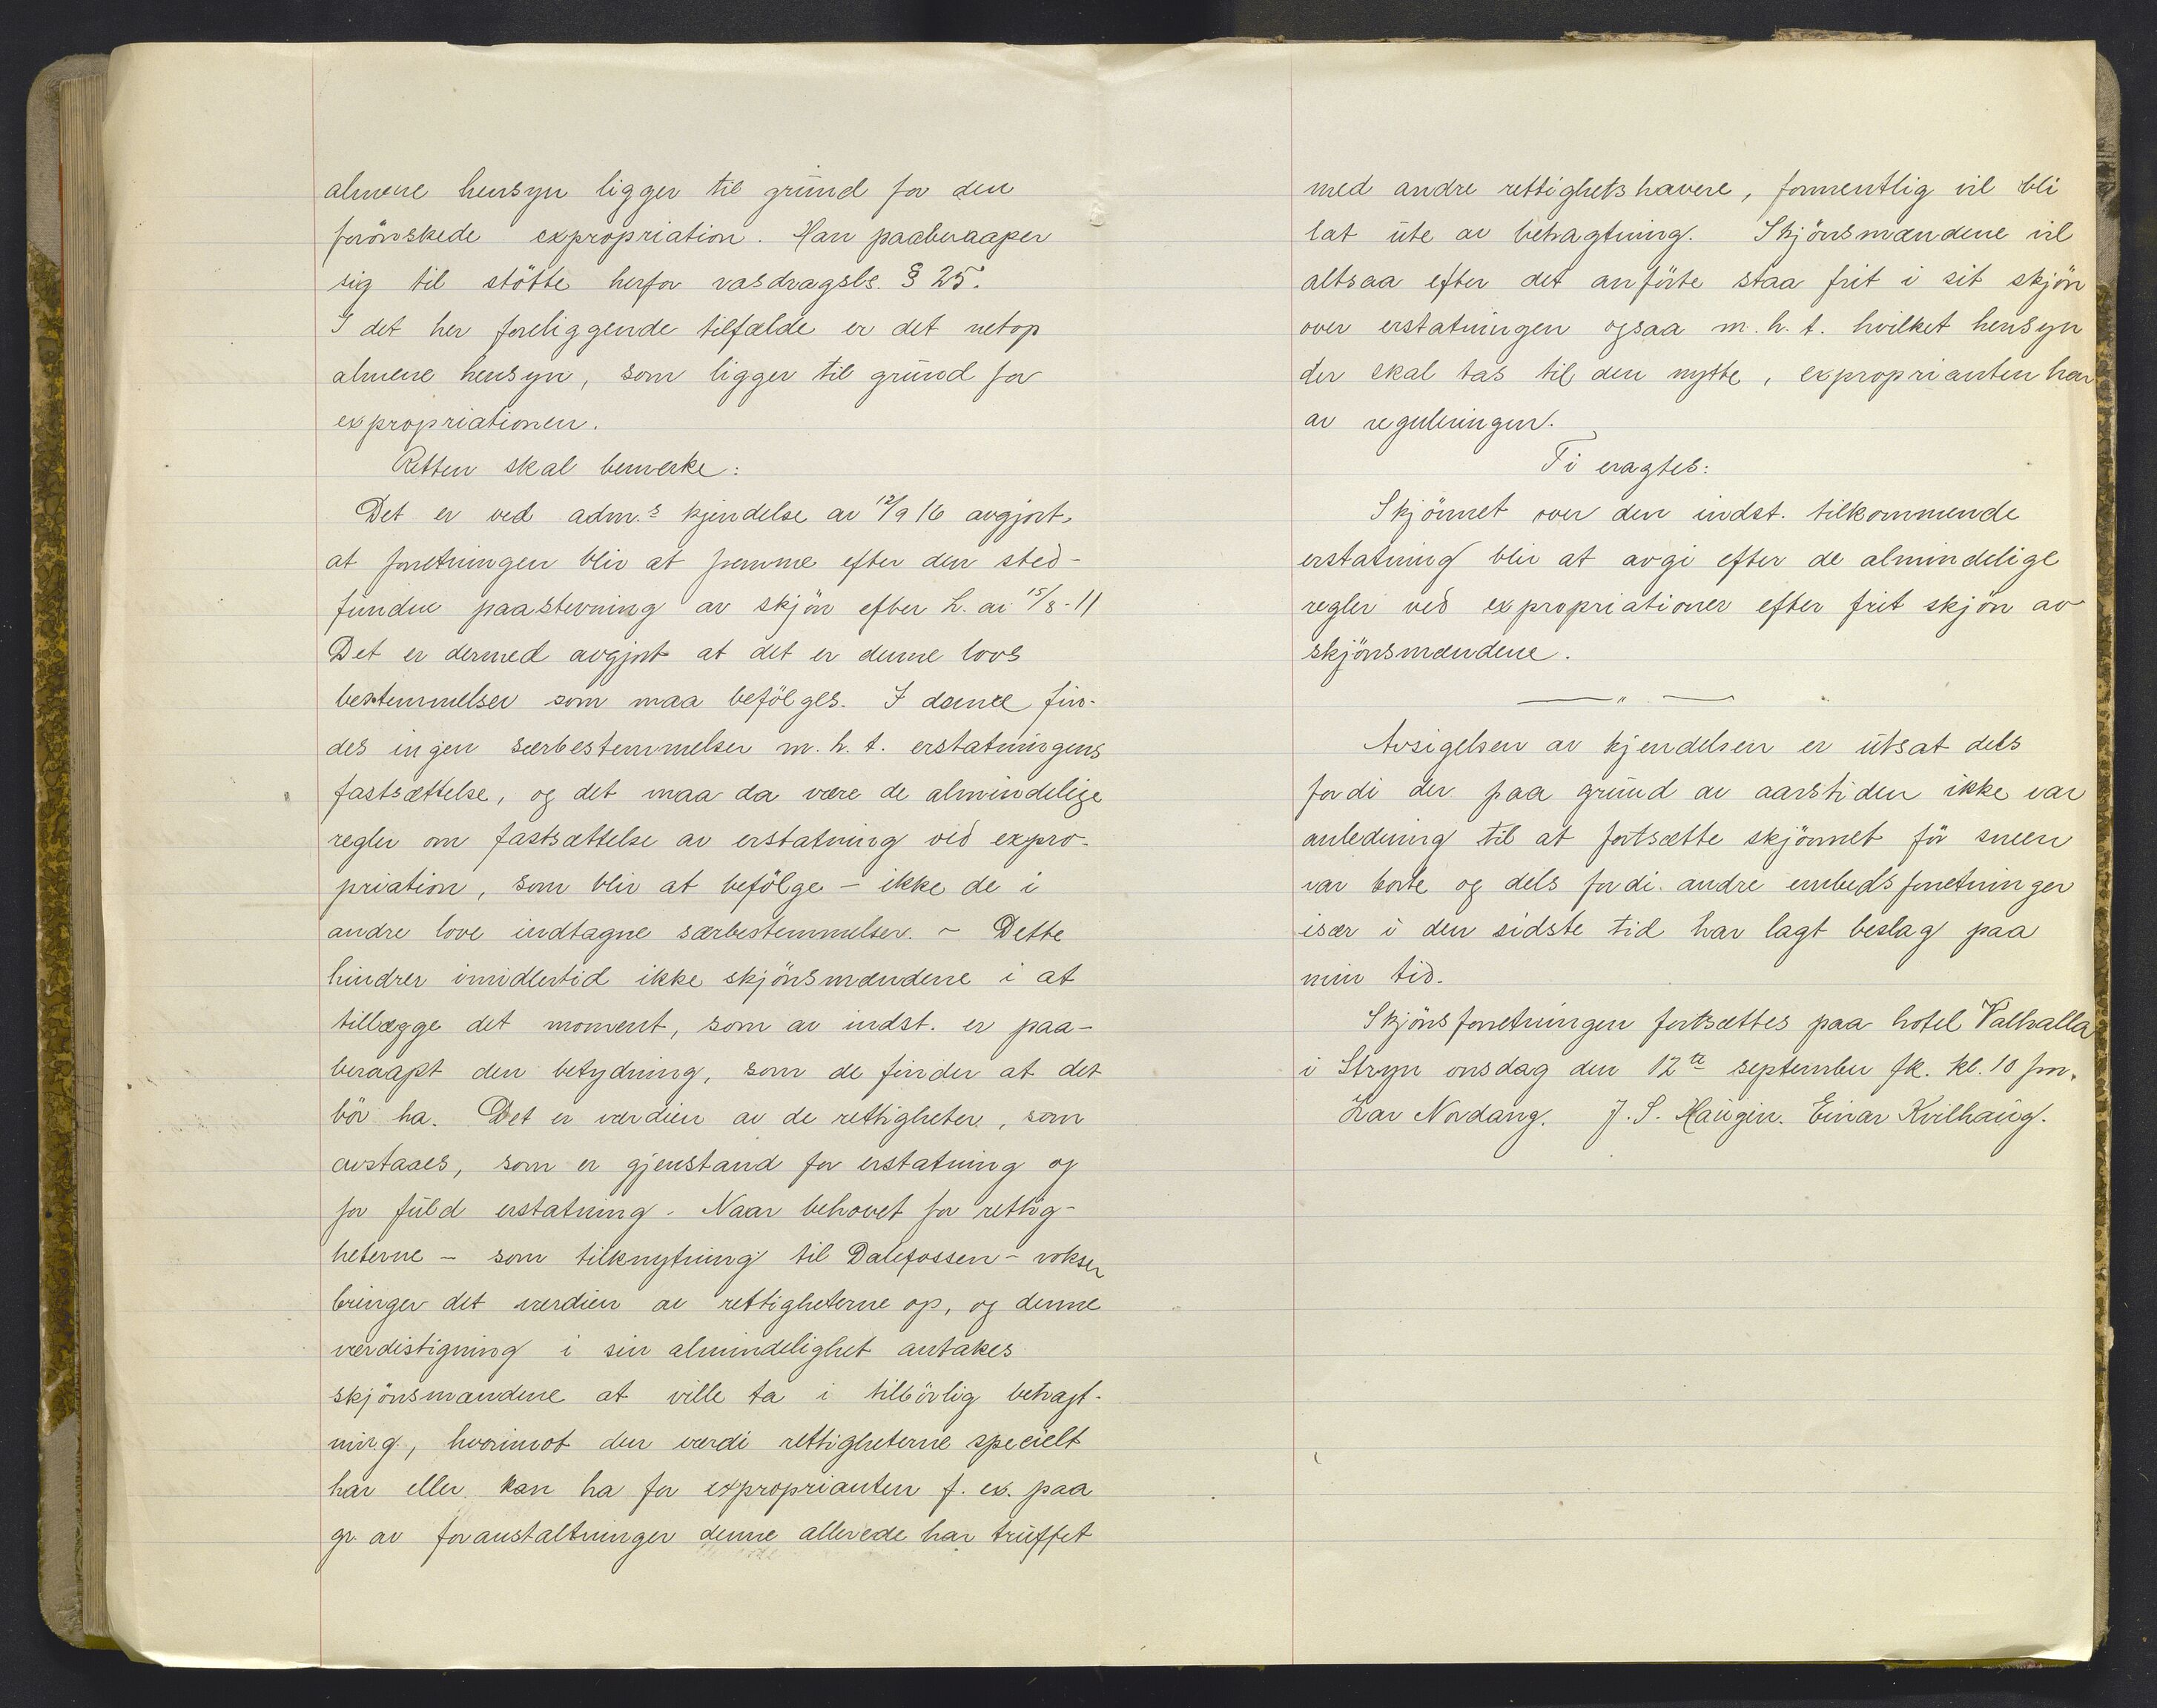 almene hensyn ligger til grund for den
forönskede expropriation. Han paaberaaper
sig til stötte herfor vasdragsls. § 25.
I det her foreliggende tilfælde er det netop
almene hensyn, som ligger til grund for
expropriationen.
Retten skal bemerke:
Det er ved adm.s kjendelse av 12/9 16 avgjort,
at forretningen blir at fremme efter den sted-
fundne paastevning av skjön efter L. av 15/8-11
Det er dermed avgjort at det er denne lovs
bestemmelser som maa befölges. I denne fin-
des ingen særbestemmelser m.h.t. erstatningens
fastsættelse, og det maa da være de almindelige
regler om fastsættelse av erstatning ved expro-
priation, som blir at befölge – ikke de i
andre love indtagne særbestemmelser. – Dette
hindrer imidlertid ikke skjönsmændene i at
tillægge det moment, som av indst. er paa-
beraapt den betydning, som de finder at det
bör ha. Det er værdien av de rettigheter, som
avstaaes, som er gjenstand for erstatning og
for fuld erstatning. Naar behovet for rettig-
heterne – som tilknytning til Dalefossen – vokser
bringer det værdien av rettigheterne op, og denne
værdistigning i sin almindelighet antakes
skjönsmændene at ville ta i tilbörlig betragt-
ning, hvorimot den værdi rettigheterne specielt
har eller kan ha for exproprianten f. ex. paa
gr. av foranstaltninger denne allerede har truffet
med andre rettighetshavere, formentlig vil bli
lat ute av betragtning. Skjönsmændene vil
altsaa efter det anförte staa frit i sit skjön
over erstatningen ogsaa m.h.t. hvilket hensyn
der skal tas til den nytte, exproprianten har
av reguleringen.
Ti eragtes:
Skjönnet over den indst. tilkommende
erstatning blir at avgi efter de almindelige
regler ved expropriationer efter frit skjön av
skjönsmændene.
— " —
Avsigelsen av kjendelsen er utsat dels
fordi der paa grund av aarstiden ikke var
anledning til at fortsætte skjönnet för sneen
var borte og dels fordi andre embedsforretninger
især i den sidste tid har lagt beslag paa
min tid.
Skjönsforretningen fortsættes paa hotel Valhalla
i Stryn onsdag den 12te september fk. kl. 10 fm.
Lar Nordang. J. S. Haugen. Einar Kvilhaug.